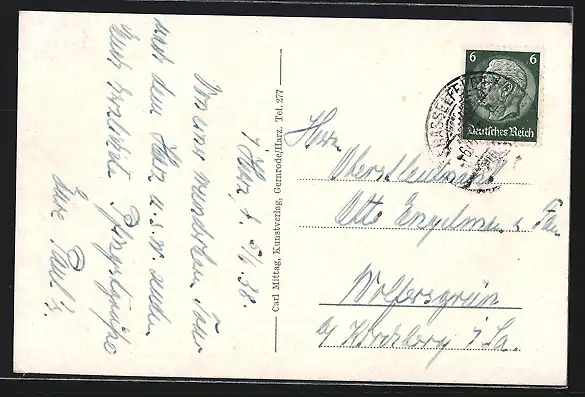 6 6
Deutsches Reich
HASSELFELDE
Carl Mittag, Kunstverlag, Gernrode/Harz. Tel. 277
i/Harz, d. 5/6.38.
Von einer wunderbaren Tour
nach dem Harz u.s.w. senden
Euch herzlichste Pfingstgrüße
Eure Paul's.
Herrn
Oberstleutnant
Otto Engelmann u Frau
Wolfersgrün
by Kirchberg i/Sa.